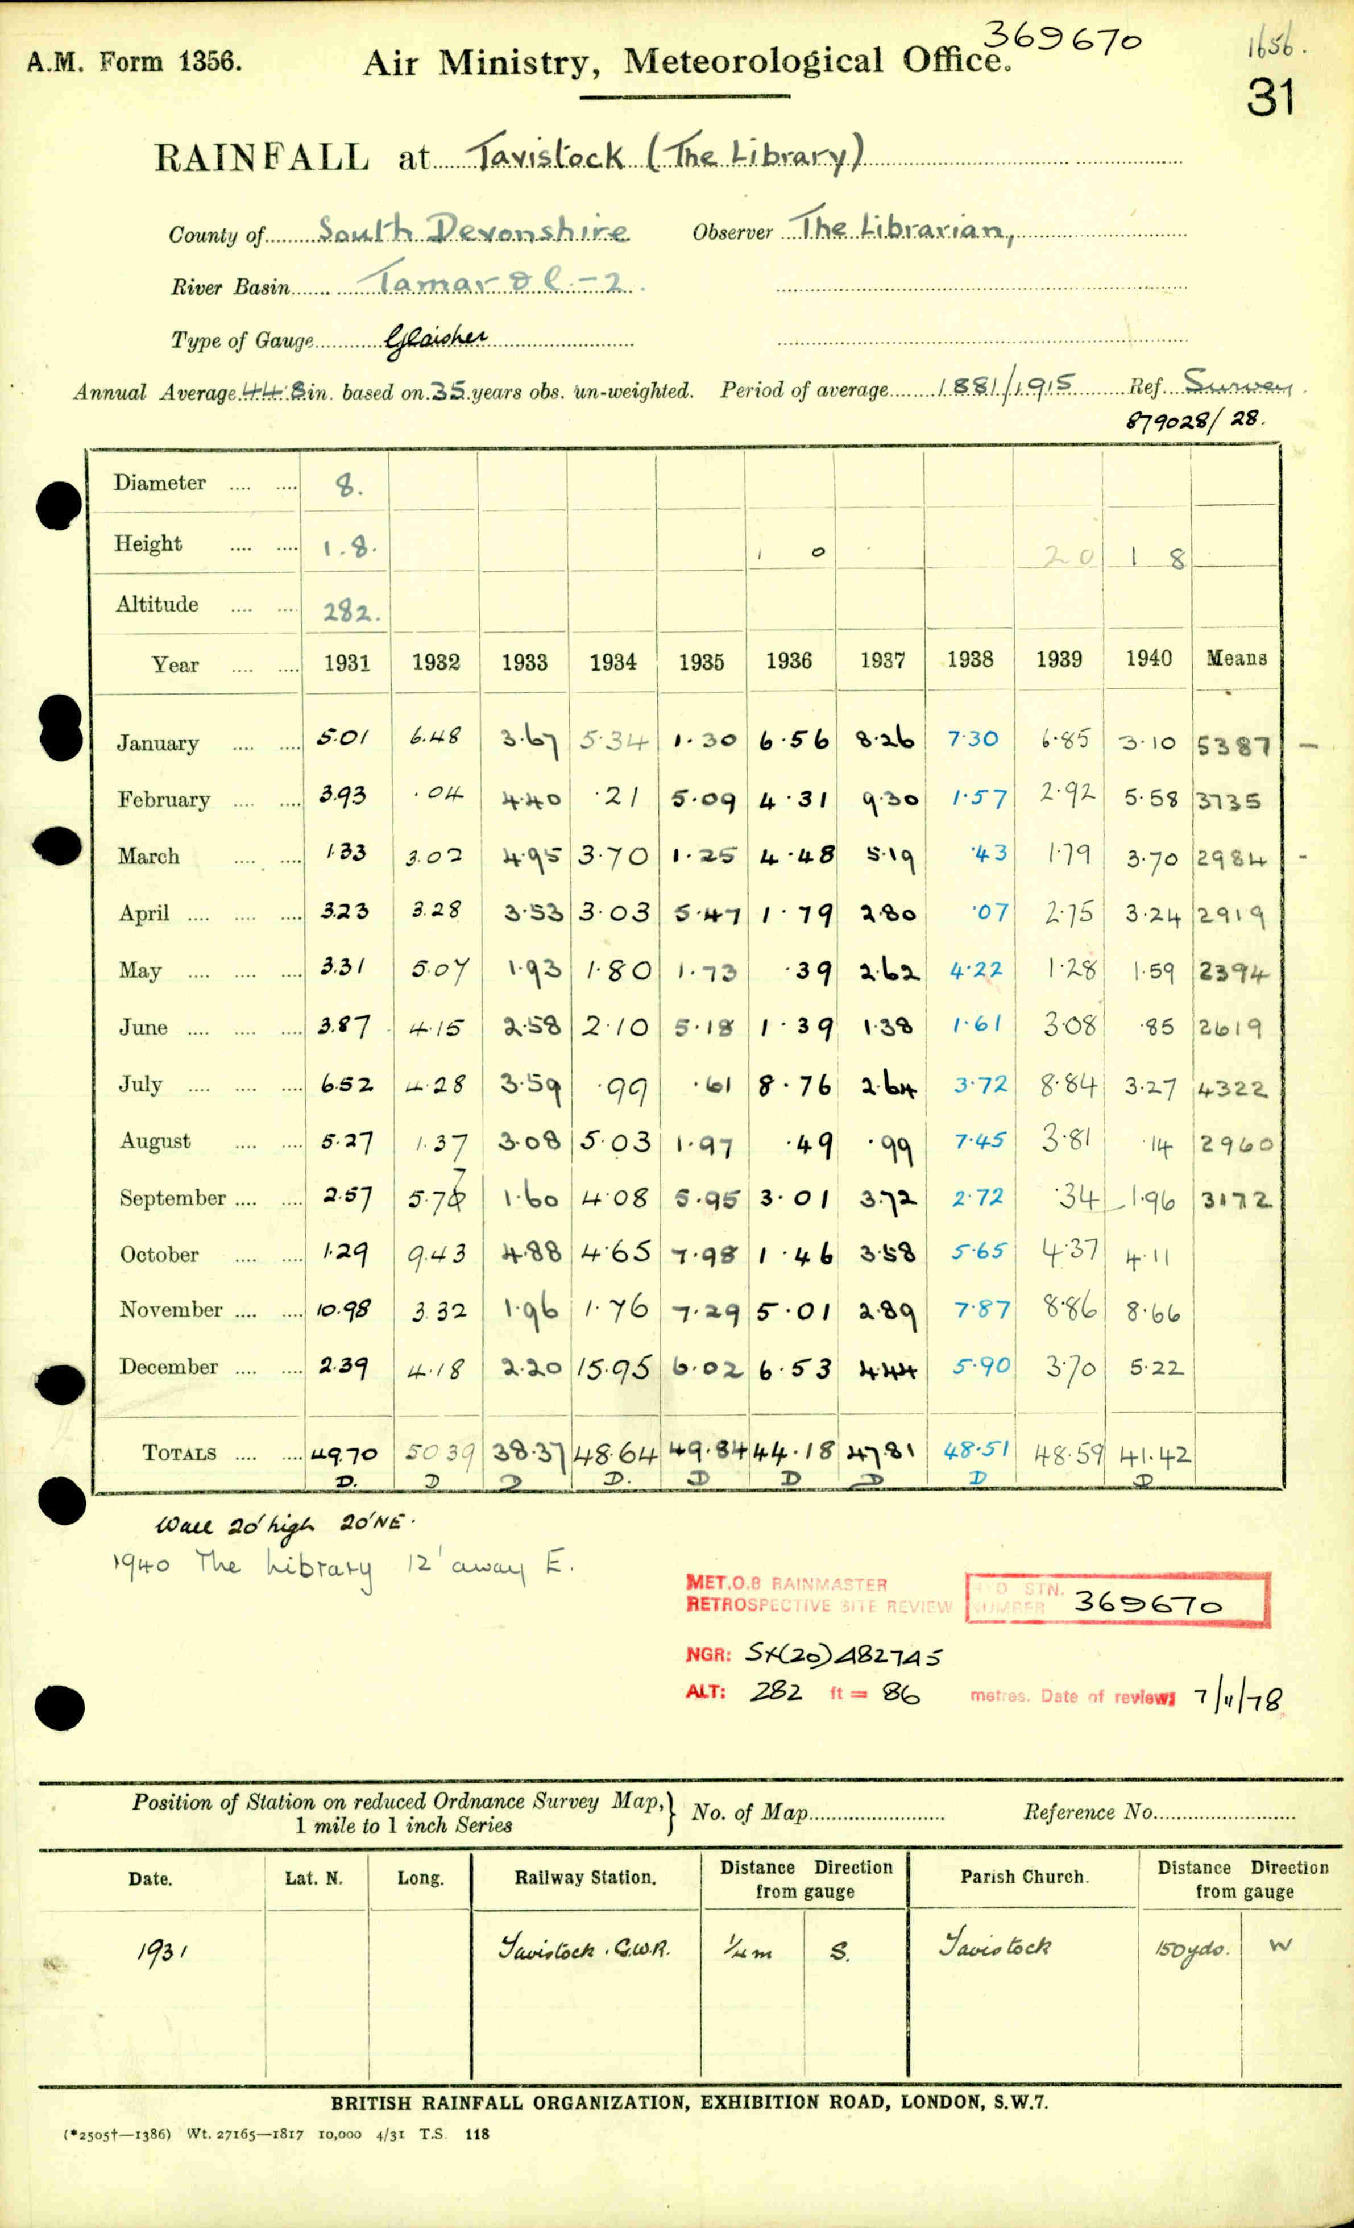 369670
1656.
A.M. Form 1356. Air Ministry, Meteorological Office.
31
RAINFALL at Tavistock (The Library)
County of South Devonshire Observer The Librarian,
River Basin Tamar & C. - 2.
Type of Gauge Glaisher
Annual Average 44.8 in. based on 35 years obs. un-weighted. Period of average 1881/1915 Ref. Survey.
879028/28.
Diameter .... .... 8.
Height .... .... 1.8. 1 0 20 1 8
Altitude .... .... 282.
Year .... .... 1931 1932 1933 1934 1935 1936 1937 1938 1939 1940 Means
January .... .... 5.01 6.48 3.67 5.34 1.30 6.56 8.26 7.30 6.85 3.10 5387 -
February .... .... 3.93 .04 4.40 .21 5.09 4.31 9.30 1.57 2.92 5.58 3735
March .... .... 1.33 3.02 4.95 3.70 1.25 4.48 5.19 .43 1.79 3.70 2984 -
April .... .... .... 3.23 3.28 3.53 3.03 5.47 1.79 2.80 .07 2.75 3.24 2919
May .... .... .... 3.31 5.07 1.93 1.80 1.73 .39 2.62 4.22 1.28 1.59 2394
June .... .... .... 3.87 4.15 2.58 2.10 5.18 1.39 1.38 1.61 3.08 .85 2619
July .... .... .... 6.52 4.28 3.59 .99 .61 8.76 2.64 3.72 8.84 3.27 4322
August .... .... 5.27 1.37 3.08 5.03 1.97 .49 .99 7.45 3.81 .14 2960
September .... .... 2.57 5.77 1.60 4.08 5.95 3.01 3.72 2.72 .34 1.96 3172
October .... .... 1.29 9.43 4.88 4.65 7.98 1.46 3.58 5.65 4.37 4.11
November .... .... 10.98 3.32 1.96 1.76 7.29 5.01 2.89 7.87 8.86 8.66
December .... .... 2.39 4.18 2.20 15.95 6.02 6.53 4.44 5.90 3.70 5.22
TOTALS .... .... 49.70 50.39 38.37 48.64 49.84 44.18 47.81 48.51 48.59 41.42
D. D D D. D D D D D
Wall 20' high 20' NE.
1940 The Library 12' away E.
MET.O.8 RAINMASTER
RETROSPECTIVE SITE REVIEW STN. NUMBER 369670
NGR: SX(20)482745
ALT: 282 ft = 86 metres. Date of review: 7/11/78
Position of Station on reduced Ordnance Survey Map, } No. of Map Reference No.
1 mile to 1 inch Series
Date. Lat. N. Long. Railway Station. Distance Direction from gauge Parish Church. Distance Direction from gauge
1931 Tavistock. G.W.R. 1/4 m S. Tavistock 150 yds. W
BRITISH RAINFALL ORGANIZATION, EXHIBITION ROAD, LONDON, S.W.7.
(*2505†—1386) Wt. 27165—1817 10,000 4/31 T.S. 118